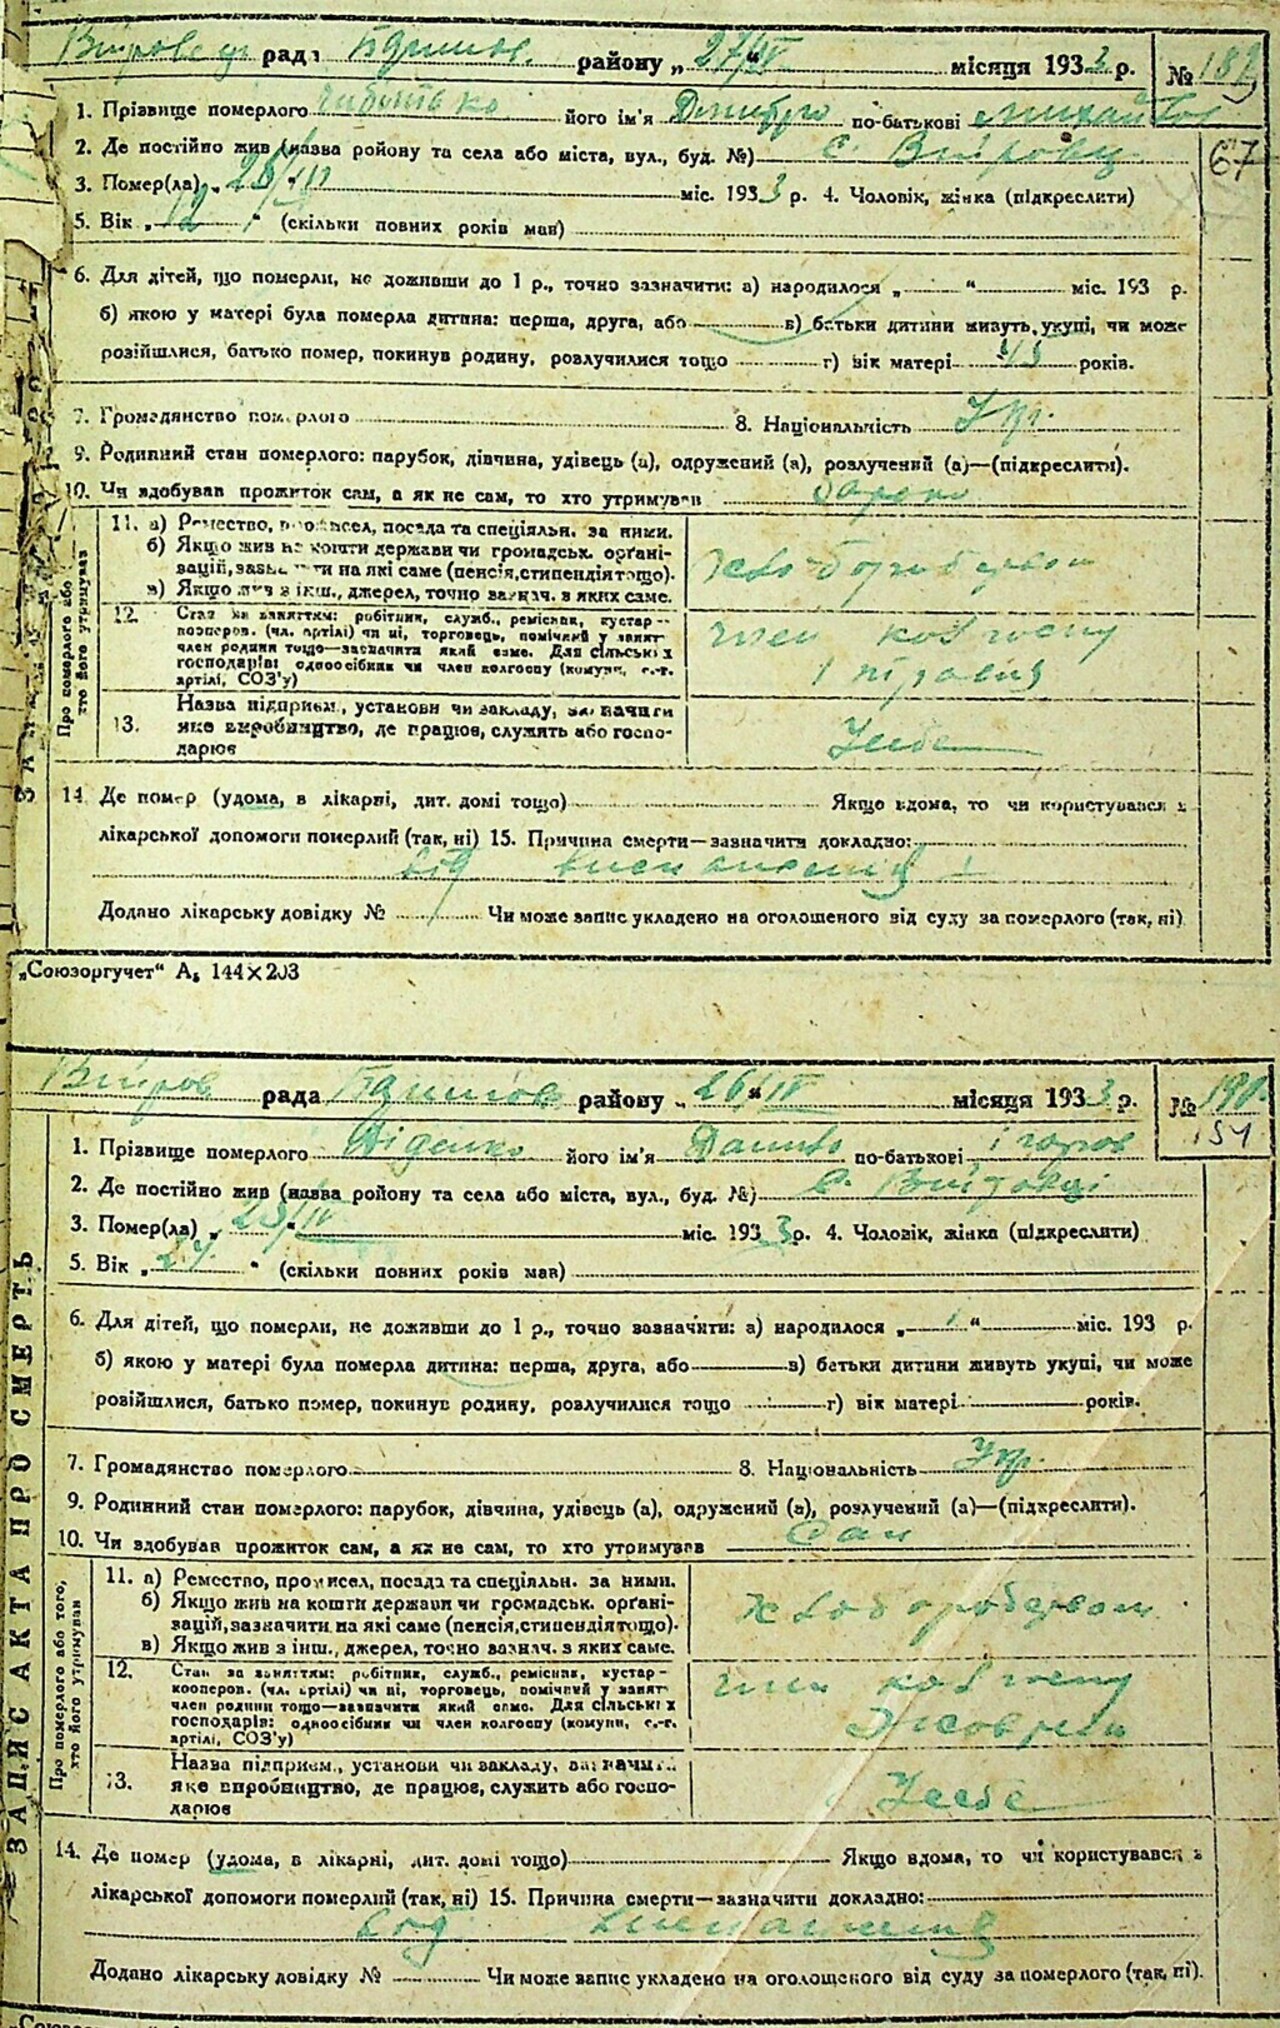 рада району „27/IV“ місяця 1933 р. № 189
1. Прізвище померлого його ім'я Дмитро по-батькові Михайлов
67
2. Де постійно жив (назва ройону та села або міста, вул., буд. №) с. Війтовці
3. Помер(ла) міс. 1933 р. 4. Чоловік, жінка (підкреслити)
5. Вік „12“ (скільки повних років мав)
6. Для дітей, що померли, не доживши до 1 р., точно зазначити: а) народилося „ “ міс. 193 р.
б) якою у матері була померла дитина: перша, друга, або в) батьки дитини живуть укупі, чи може
розійшлися, батько помер, покинув родину, розлучилися тощо г) вік матері років.
7. Громадянство померлого 8. Національність Укр.
9. Родинний стан померлого: парубок, дівчина, удівець (а), одружений (а), розлучений (а)—(підкреслити).
10. Чи здобував прожиток сам, а як не сам, то хто утримував
Про померлого або того, хто його утримував
11. а) Ремество, промисел, посада та спеціяльн. за ними.
б) Якщо жив на кошти держави чи громадськ. орґані-
зацій, зазначити на які саме (пенсія, стипендія тощо).
в) Якщо жив з інш., джерел, точно зазнач. з яких саме.
хліборобство
12. Стан за заняттям: робітник, служб., ремісник, кустар-
кооперов. (чл. артілі) чи ні, торговець, помічний у занят.
член родини тощо—зазначити який саме. Для сільських
господарів: одноосібник чи член колгоспу (комуни, с.-г.
артілі, СОЗ'у)
член колгоспу
13. Назва підприєм., установи чи закладу, зазначити
яке виробництво, де працює, служить або госпо-
дарює
14. Де помер (удома, в лікарні, дит. домі тощо) Якщо вдома, то чи користувався з
лікарської допомоги померлий (так, ні) 15. Причина смерти—зазначити докладно:
від виснаження
Додано лікарську довідку № Чи може запис укладено на оголошеного від суду за померлого (так, ні)
„Союзоргучет“ А₅ 144×203
ЗАПИС АКТА ПРО СМЕРТЬ
рада району „26/IV“ місяця 1933 р. № 190
151
1. Прізвище померлого Діденко його ім'я Данило по-батькові
2. Де постійно жив (назва ройону та села або міста, вул., буд. №) с. Війтовці
3. Помер(ла) „ міс. 1933 р. 4. Чоловік, жінка (підкреслити)
5. Вік „ “ (скільки повних років мав)
6. Для дітей, що померли, не доживши до 1 р., точно зазначити: а) народилося „ “ міс. 193 р.
б) якою у матері була померла дитина: перша, друга, або в) батьки дитини живуть укупі, чи може
розійшлися, батько помер, покинув родину, розлучилися тощо г) вік матері років.
7. Громадянство померлого 8. Національність Укр.
9. Родинний стан померлого: парубок, дівчина, удівець (а), одружений (а), розлучений (а)—(підкреслити).
10. Чи здобував прожиток сам, а як не сам, то хто утримував Сам
Про померлого або того, хто його утримував
11. а) Ремество, промисел, посада та спеціяльн. за ними.
б) Якщо жив на кошти держави чи громадськ. орґані-
зацій, зазначити на які саме (пенсія, стипендія тощо).
в) Якщо жив з інш., джерел, точно зазнач. з яких саме.
хліборобство
12. Стан за заняттям: робітник, служб., ремісник, кустар-
кооперов. (чл. артілі) чи ні, торговець, помічний у занят.
член родини тощо—зазначити який саме. Для сільських
господарів: одноосібник чи член колгоспу (комуни, с.-г.
артілі, СОЗ'у)
член колгоспу
13. Назва підприєм., установи чи закладу, зазначити
яке виробництво, де працює, служить або госпо-
дарює
14. Де помер (удома, в лікарні, дит. домі тощо) Якщо вдома, то чи користувався з
лікарської допомоги померлий (так, ні) 15. Причина смерти—зазначити докладно:
від виснаження
Додано лікарську довідку № Чи може запис укладено на оголошеного від суду за померлого (так, ні).